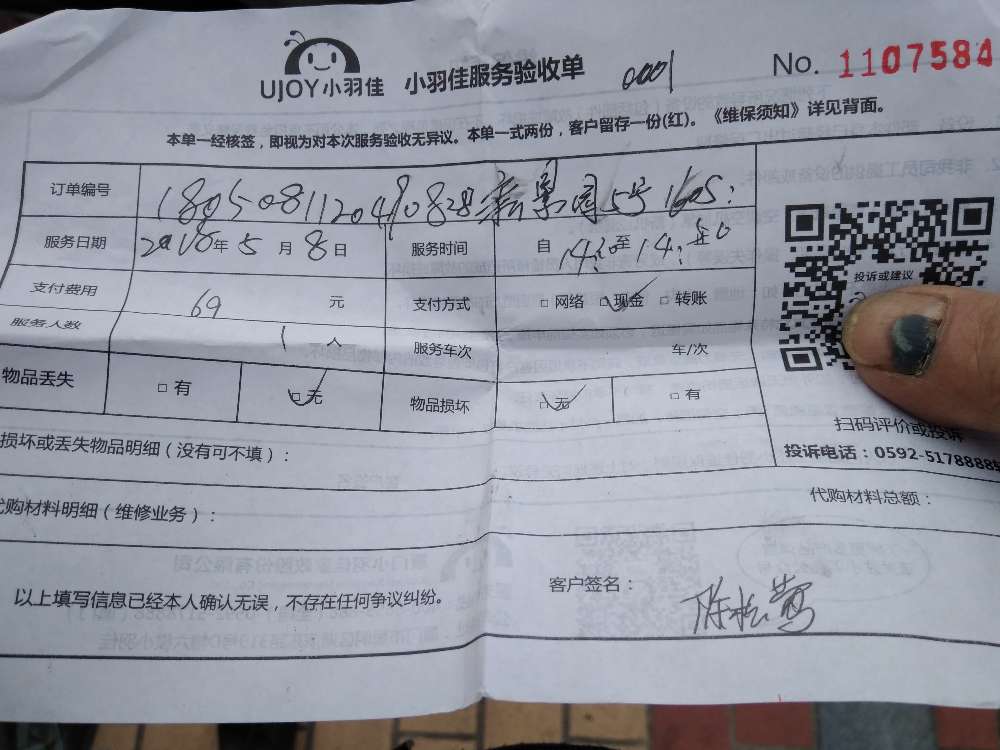 UJOY小羽佳 小羽佳服务验收单 0001 No. 1107584
本单一经核签，即视为对本次服务验收无异议。本单一式两份，客户留存一份(红)。《维保须知》详见背面。
订单编号 1805081120490828 景园5号1605:
服务日期 2018年5月8日 服务时间 自14:20至14:50
支付费用 69 元 支付方式 □ 网络 □ 现金 □ 转账
服务人数 1 人 服务车次 车/次
物品丢失 □ 有 □ 无 物品损坏 □ 无 □ 有
投诉或建议
扫码评价或投诉
投诉电话：0592-5178888
损坏或丢失物品明细（没有可不填）：
代购材料明细（维修业务）： 代购材料总额：
以上填写信息已经本人确认无误，不存在任何争议纠纷。 客户签名： 陈松莺